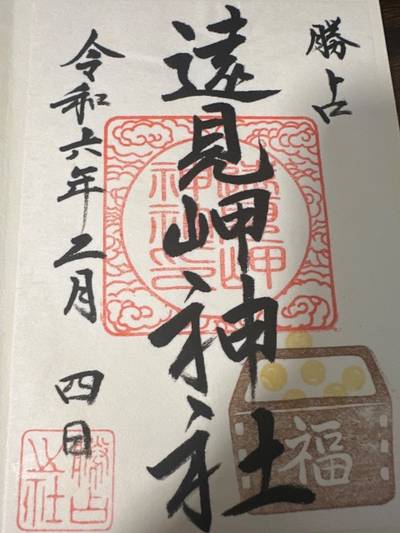 勝占
遠見岬神社
令和六年二月四日
福
遠見岬
神社印